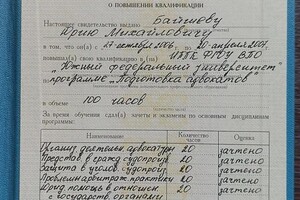 О ПОВЫШЕНИИ КВАЛИФИКАЦИИ
Настоящее свидетельство выдано Байчиеву
Юрию Михайловичу
в том, что он(а) с 27 октября 2006г. по 20 апреля 2007г.
повышал(а) свою квалификацию в (на) ФГОУ ВПО
"Южный федеральный университет"
по программе "Подготовка адвокатов"
в объеме 100 часов
За время обучения сдал(а) зачеты и экзамены по основным дисциплинам
программы:
Наименование Количество часов Оценка
Организ. деятельн. адвокатуры 20 зачтено
Представ. в гражд. судопроиз. 20 зачтено
Защита в уголов. судопроиз. 20 зачтено
Проблемы арбитраж. практики 20 зачтено
Юрид. помощь в отношен. 20 зачтено
с государств. органами